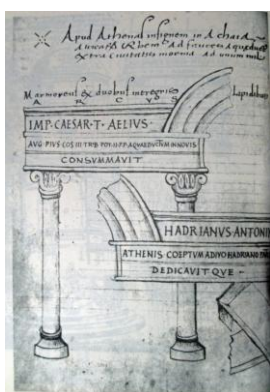 Apud Athenas insignem
Ad
extra Civitatis moenia ad unum mil
Marmoreus ex duobus integris lapidibus
A R C V S
IMP· CAESAR· T· AELIUS·
AUG PIUS COS III TRIB POT II PP AQUAEDUCTUM IN NOVIS
CONSUMMAVIT
HADRIANVS ANTONI
ATHENIS COEPTUM A DIVO HADRIANO
DEDICAVIT QVE